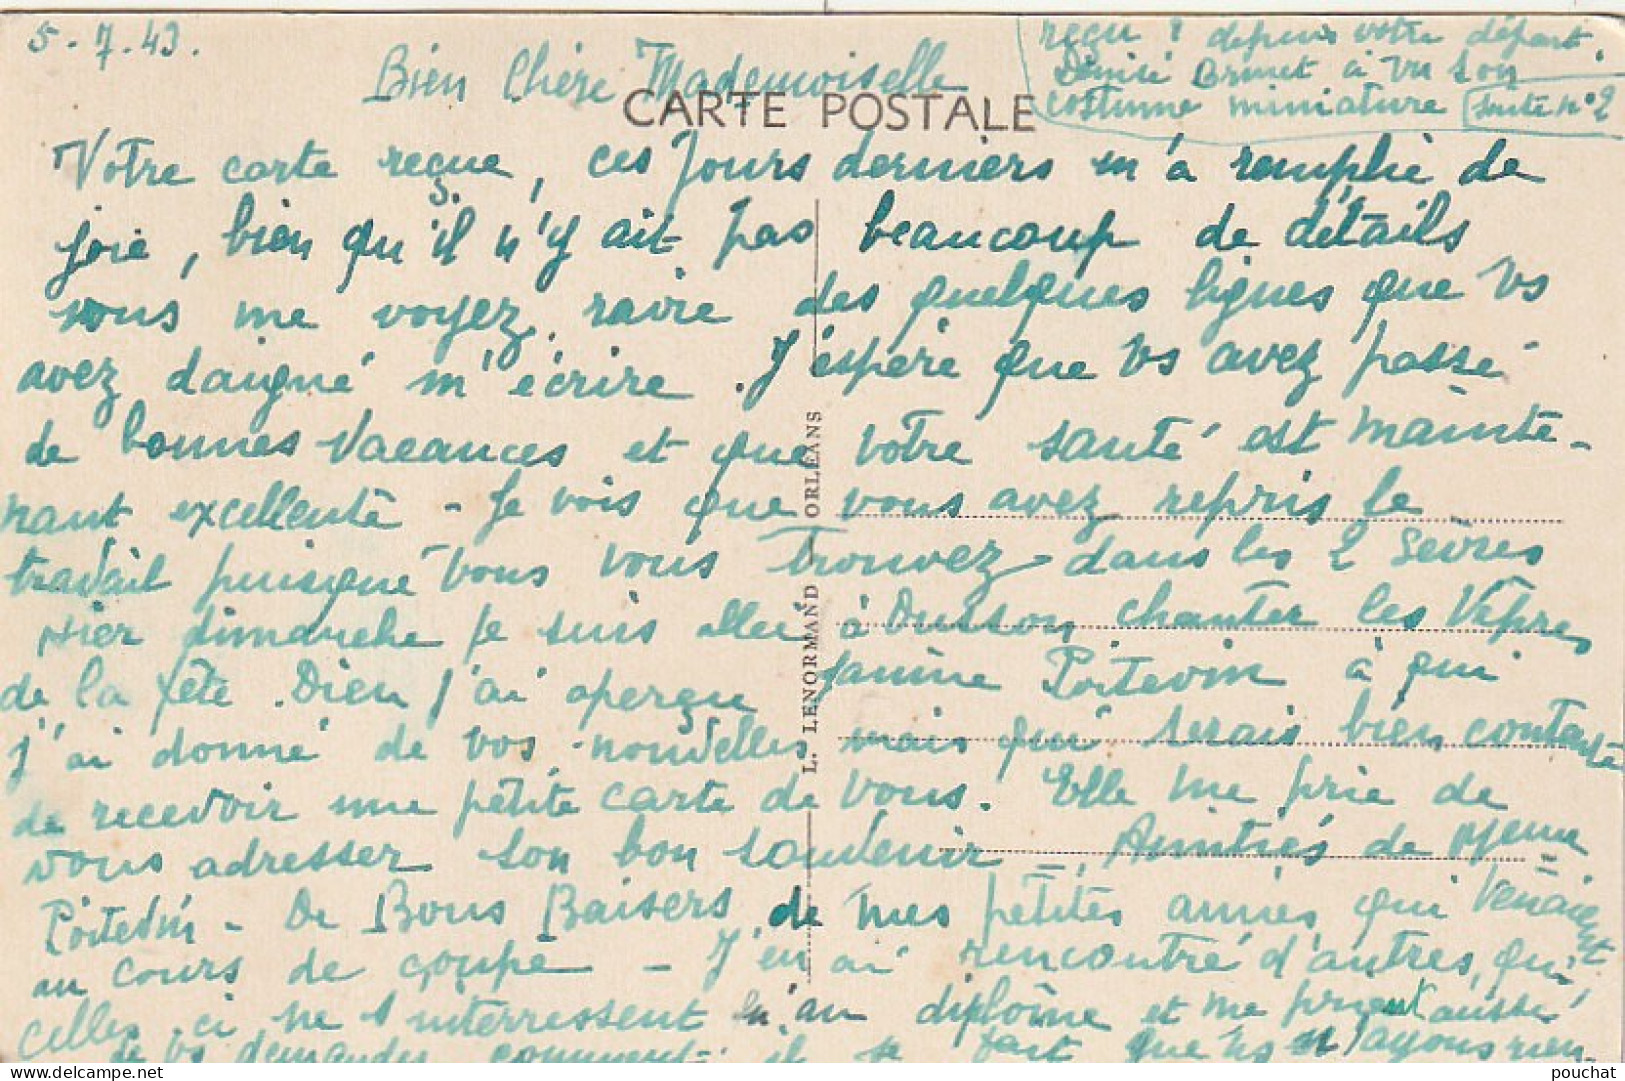 5.7.43.
Bien Chère Mademoiselle
CARTE POSTALE
Votre carte reçue, ces jours derniers m'a remplie de
joie, bien qu'il n'y ait pas beaucoup de détails
vous me voyez ravie des quelques lignes que Vs
avez daigné m'écrire. J'espère que Vs avez passé
de bonnes Vacances et que votre santé est mainte-
nant excellente - Je vois que vous avez repris le
travail puisque Vous vous trouvez dans les 2 Sèvres
Hier dimanche je suis allée à Ouzon chanter les Vêpres
de la fête. Dieu j'ai aperçu Janine Poitevin à qui
j'ai donné de vos nouvelles mais qui serais bien contente
de recevoir une petite carte de Vous. Elle me prie de
vous adresser son bon souvenir -, Amitiés de Mme
Poitevin - De Bons Baisers de mes petites amies qui Venaient
au cours de coupe - J'en ai rencontré d'autres, qui
celles-ci ne s'interressent qu'au diplôme et me prient aussi
de Vs demander comment il se fait que Vs n'ayons rien
reçu ? depuis votre départ.
Denise Brunet à vu son
costume miniature suite n°2
L. LENORMAND ORLÉANS
pouchat